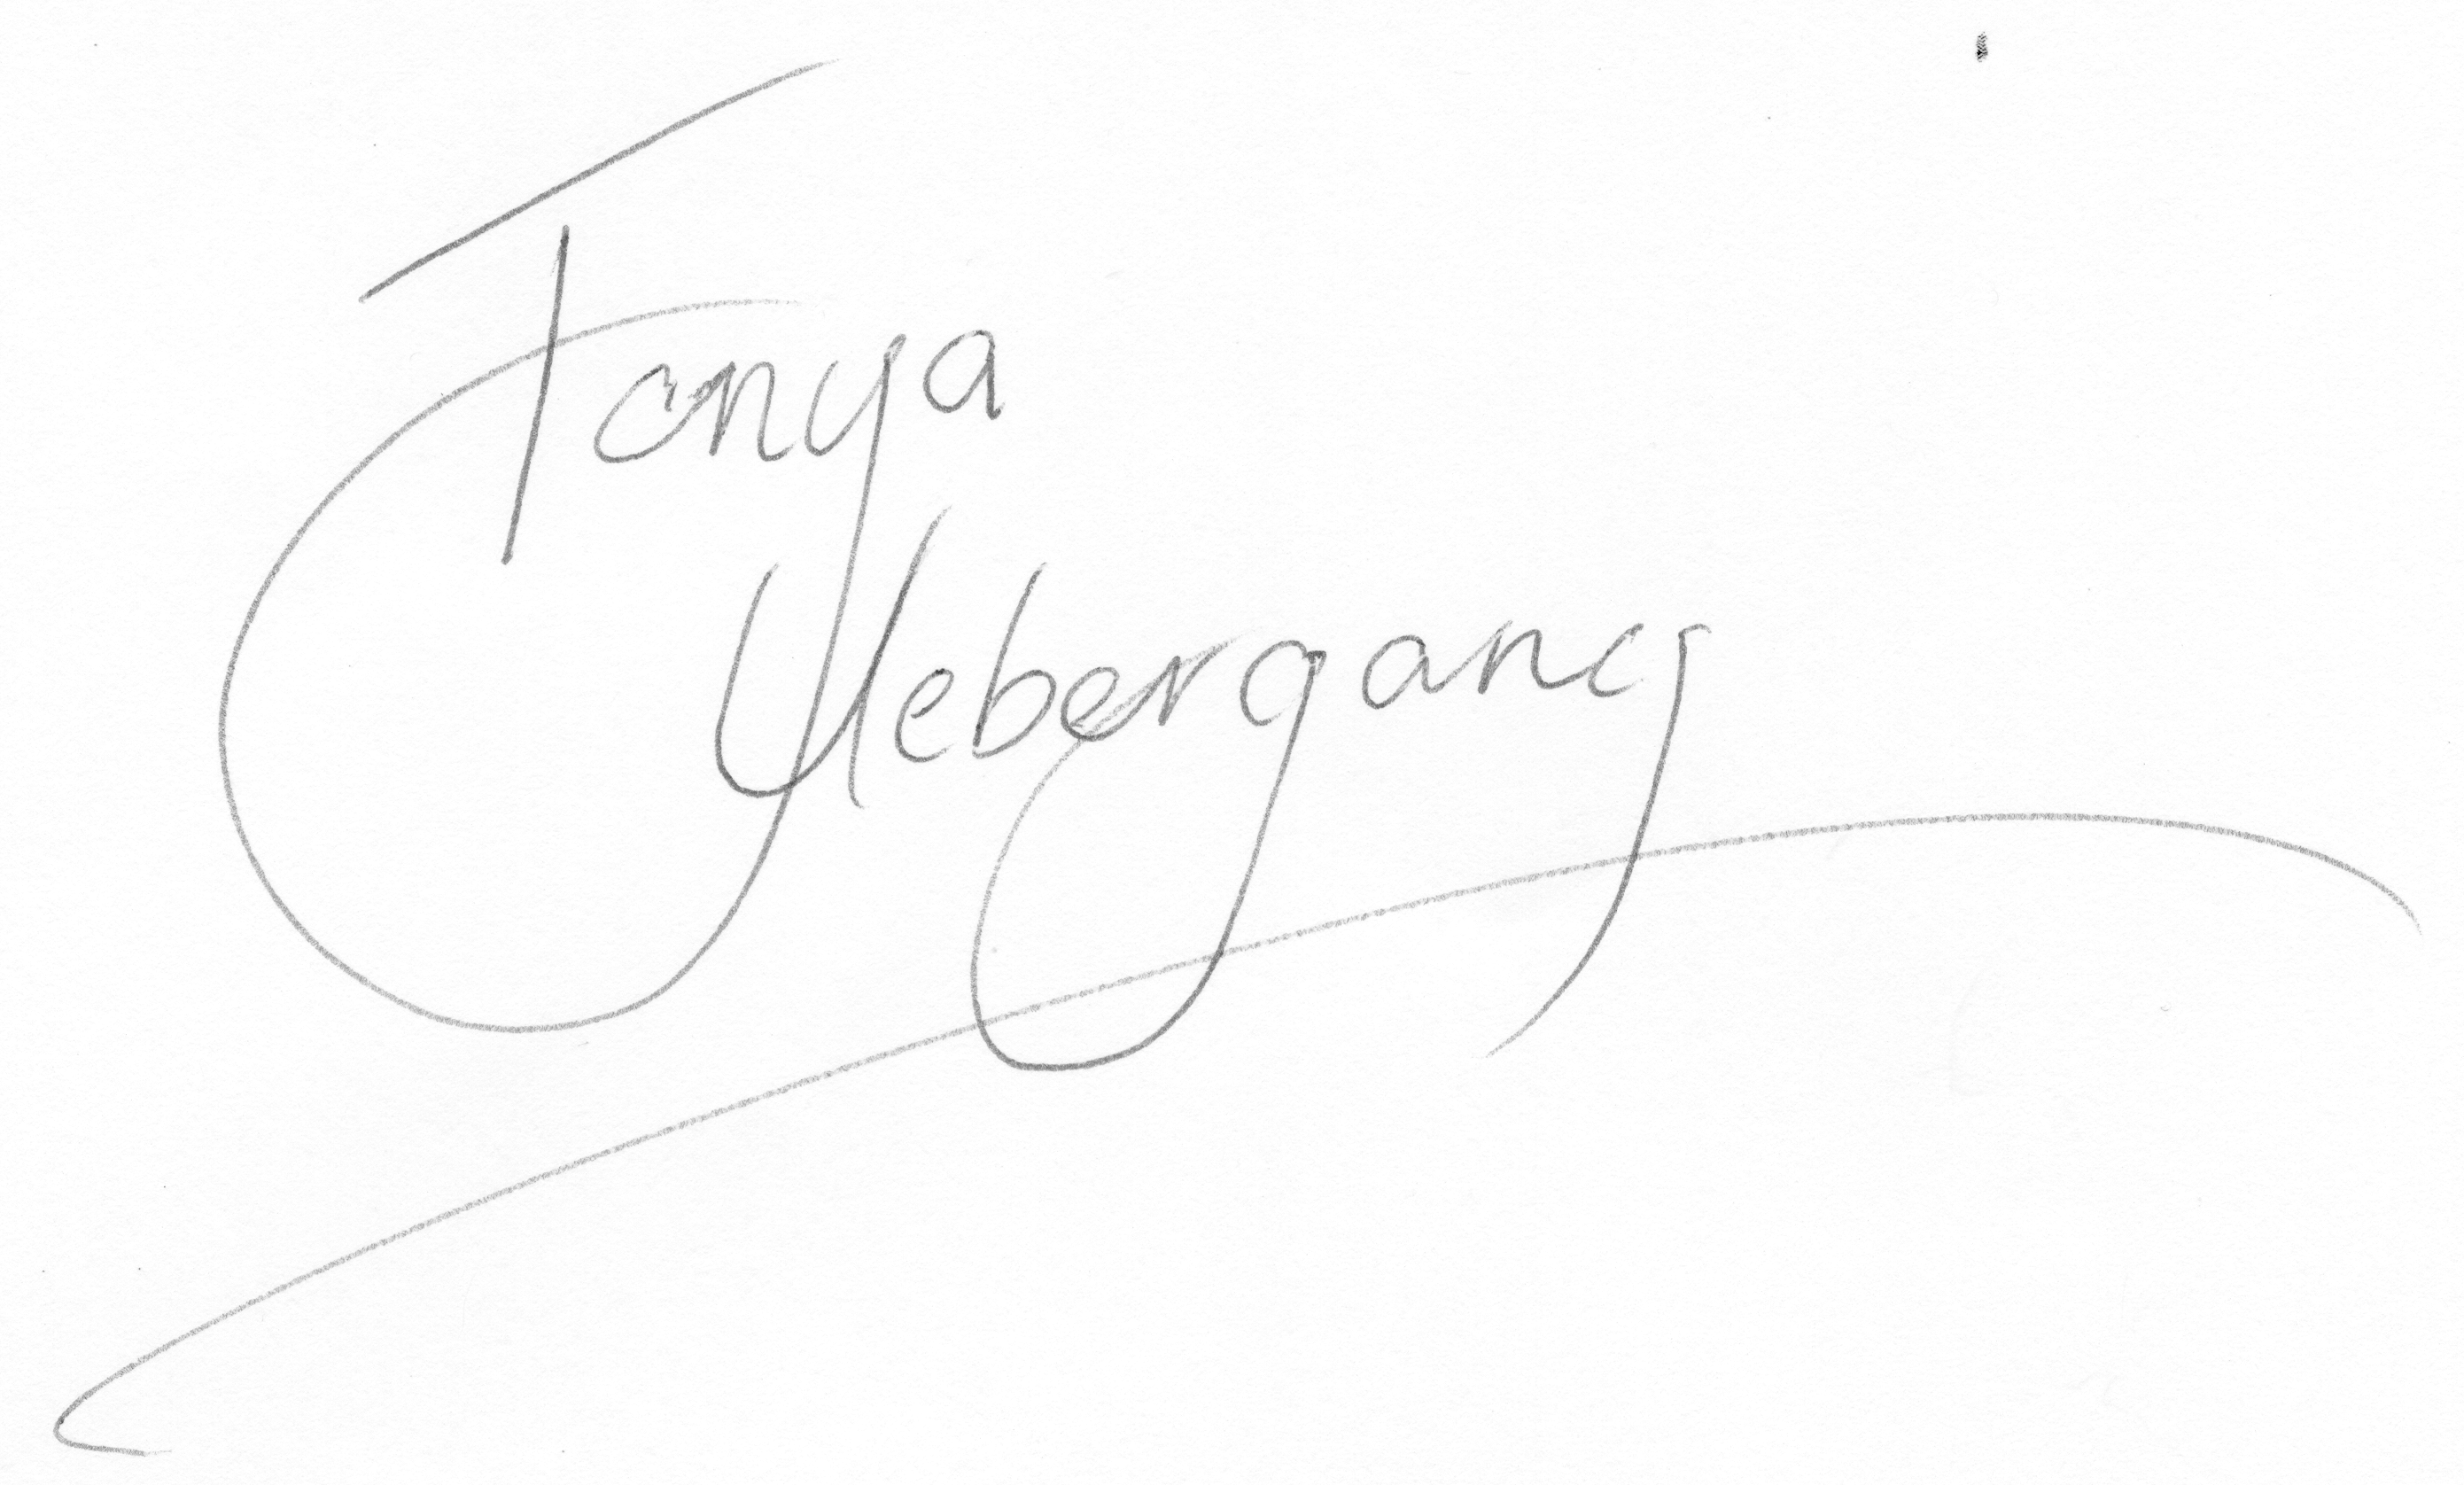 Tonya
Uebergang